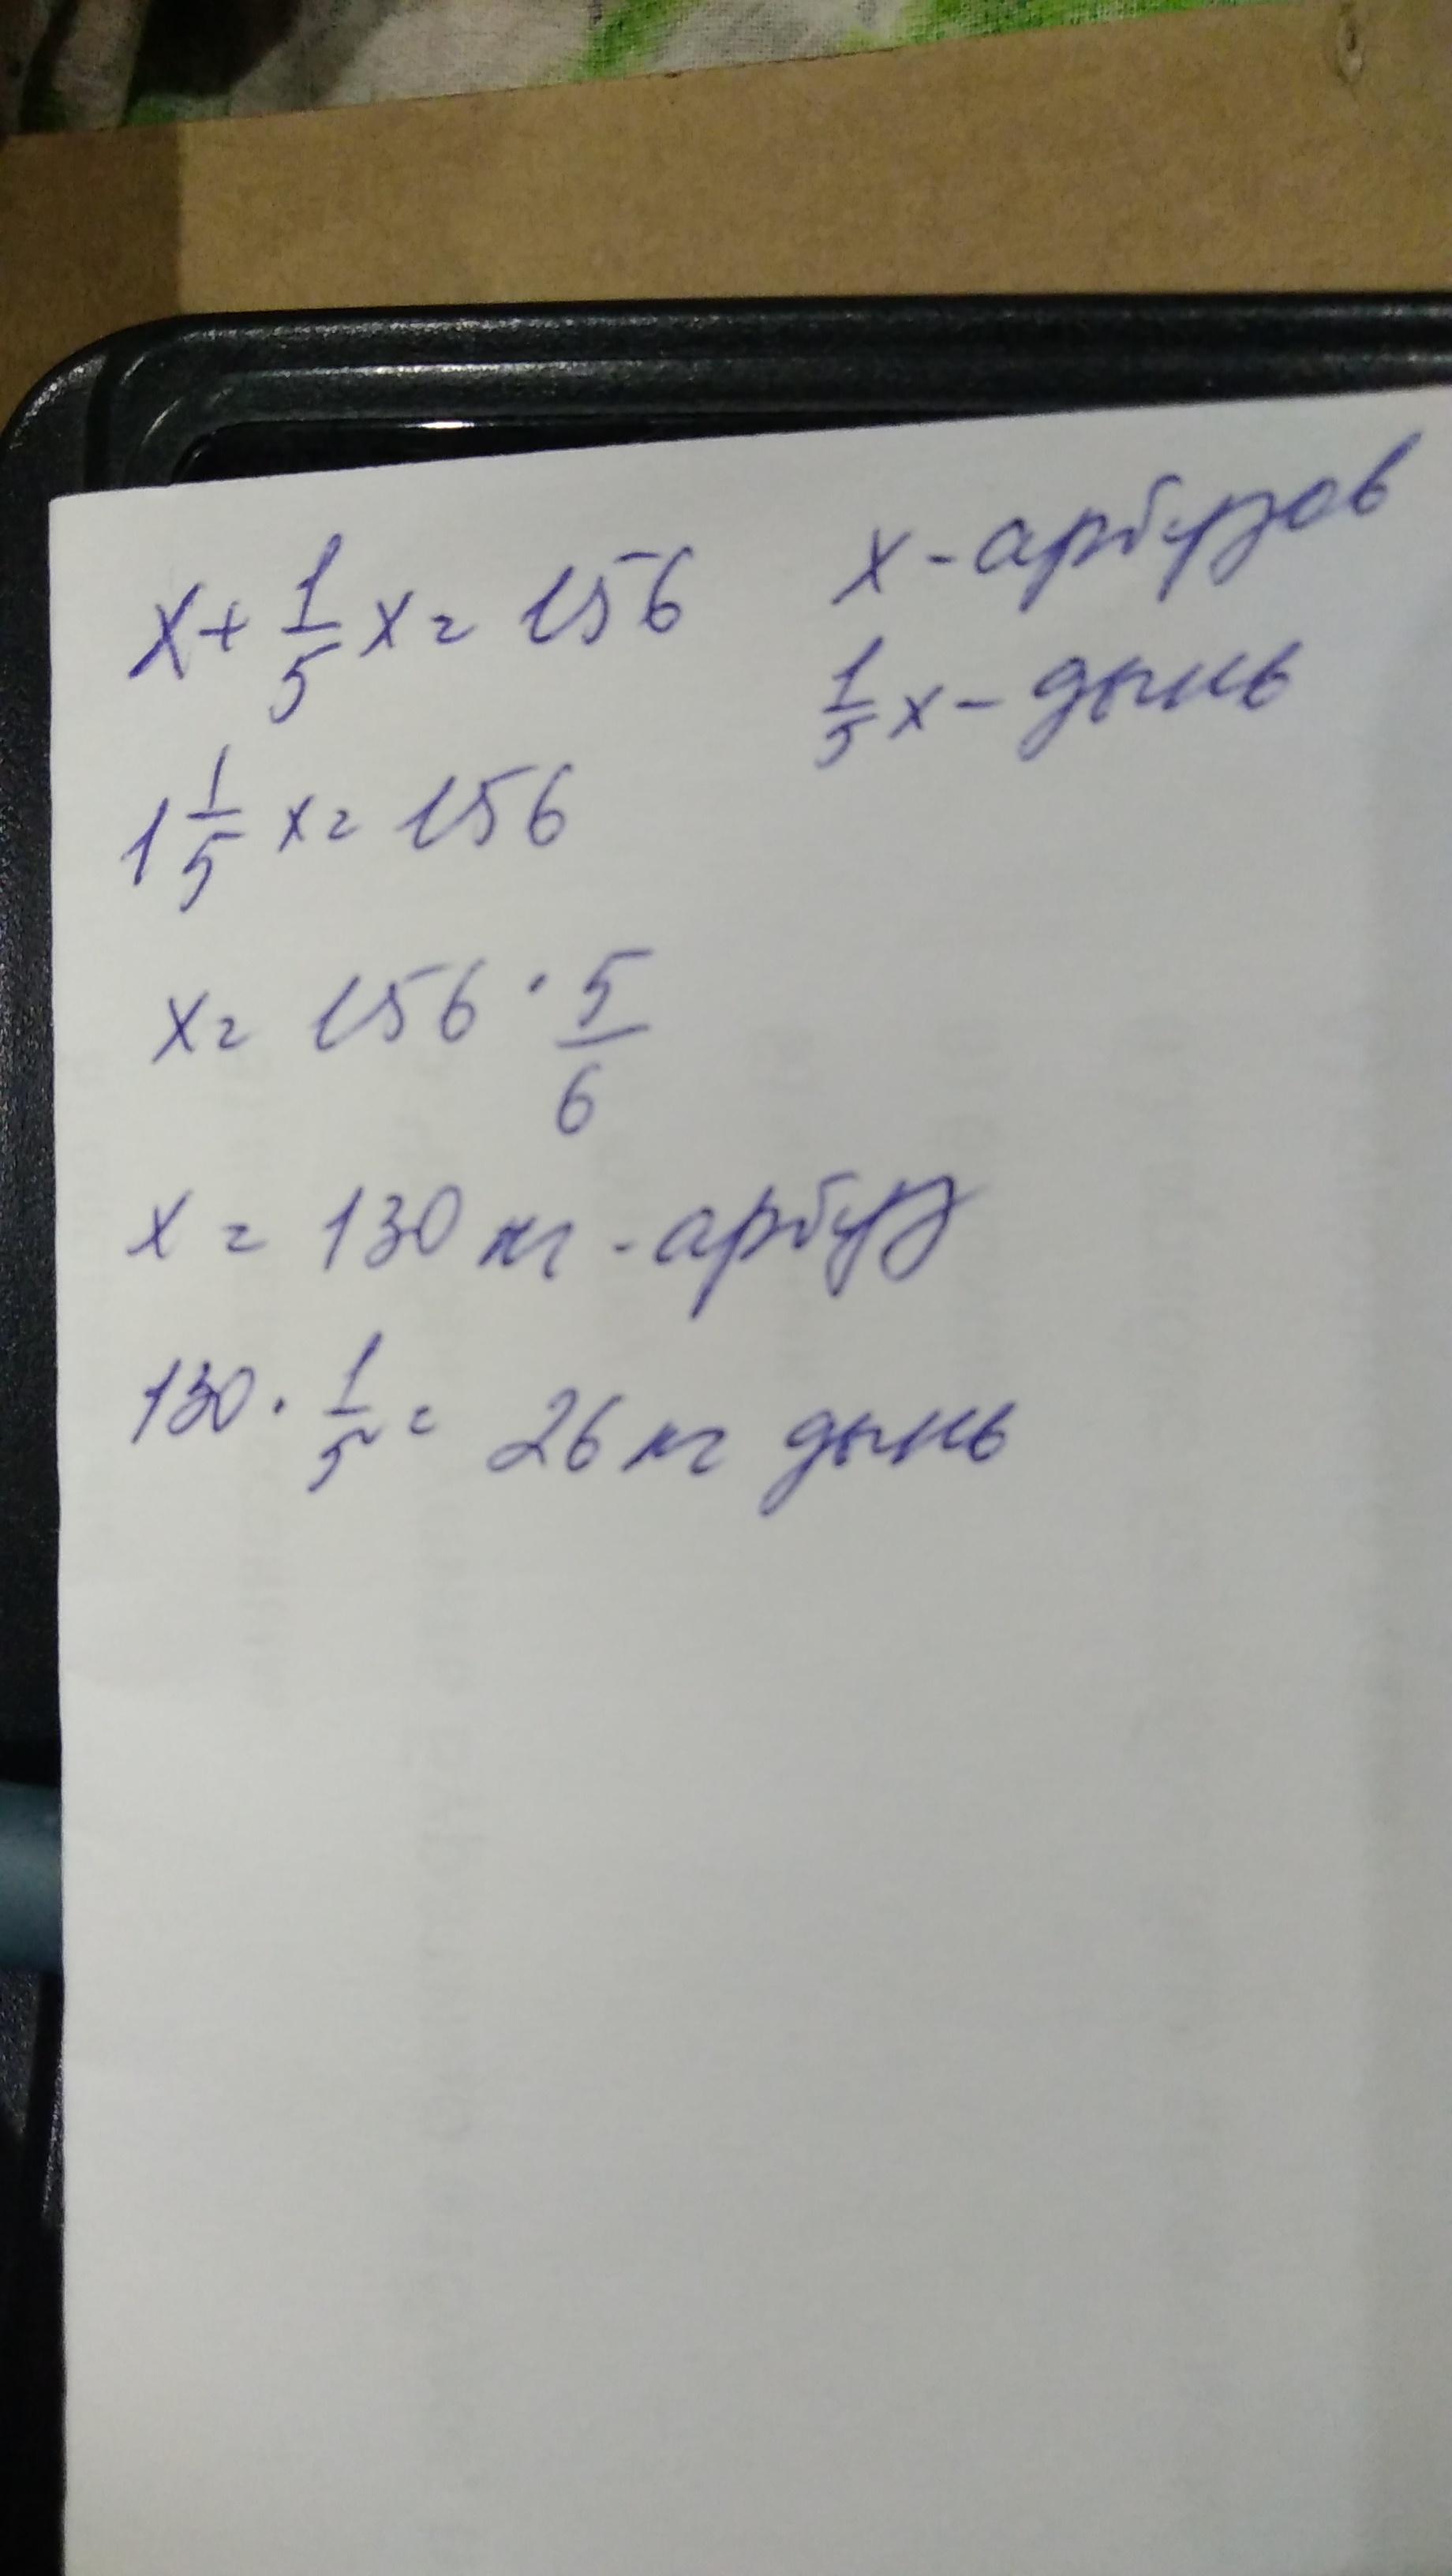 x + 1/5 x = 156
x - арбузов
1/5 x - дынь
1 1/5 x = 156
x = 156 · 5/6
x = 130 кг - арбуз
130 · 1/5 = 26 кг дынь